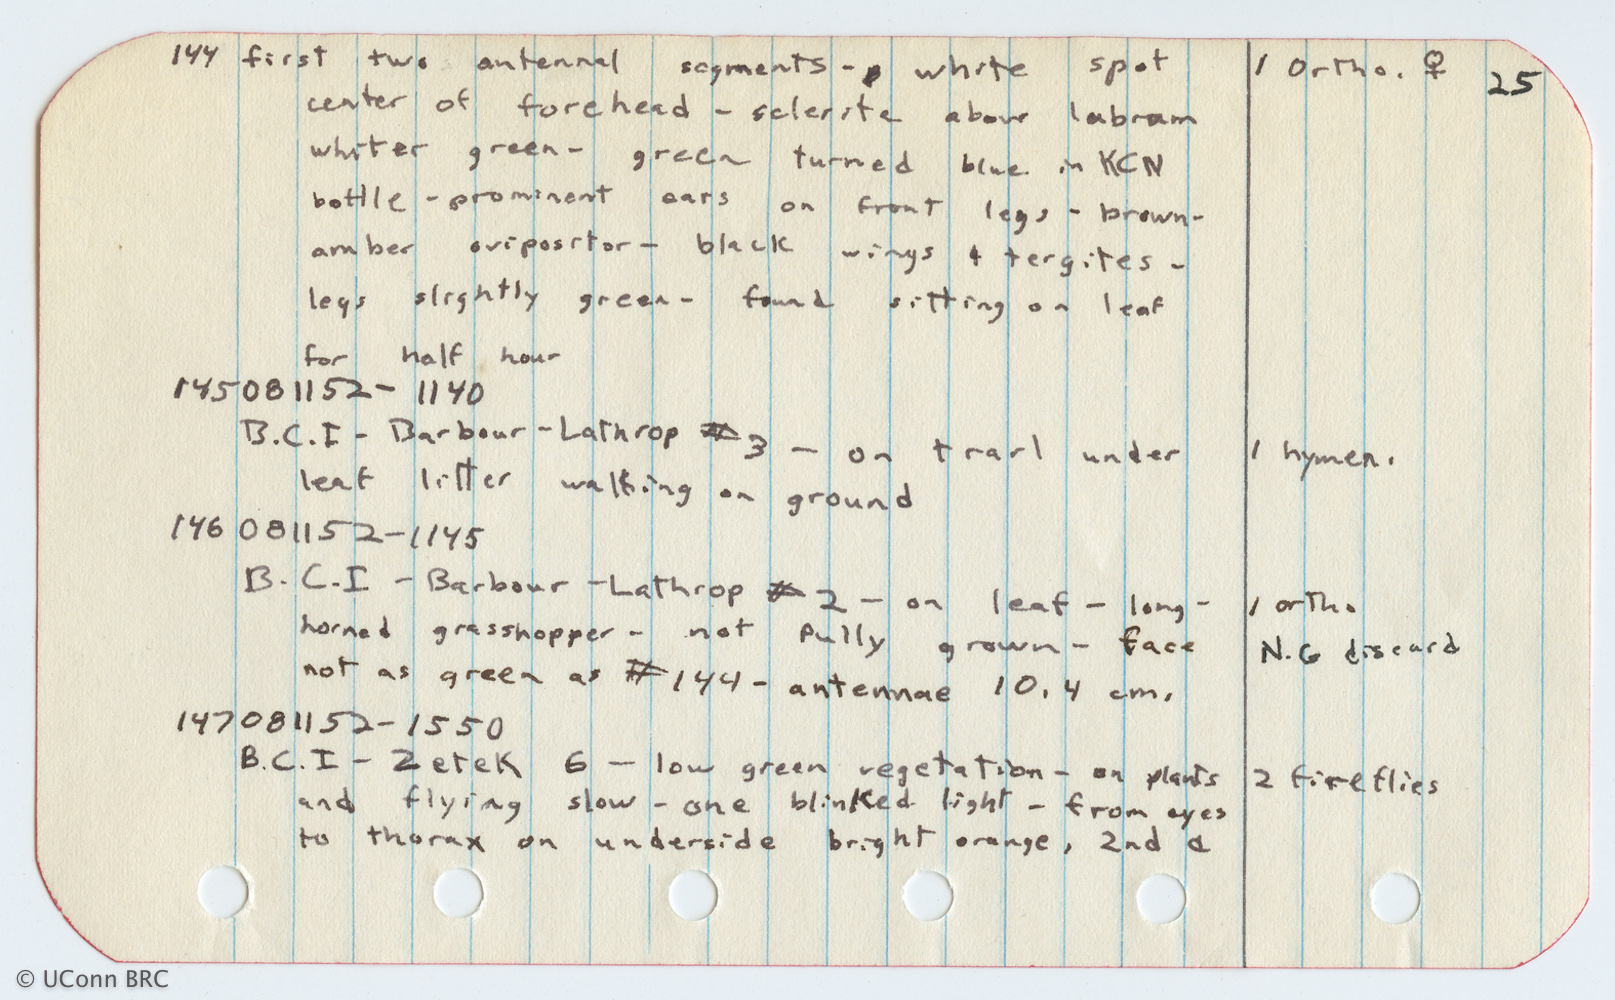 25
144 first two antennal segments - white spot 1 Ortho. ♀
center of forehead - sclerite above labram
whiter green - green turned blue in KCN
bottle - prominent ears on front legs - brown-
amber ovipositor - black wings & tergites -
legs slightly green - found sitting on leaf
for half hour
145 081152 - 1140
B.C.I - Barbour - Lathrop # 3 - on trail under 1 hymen.
leaf litter walking on ground
146 081152 - 1145
B.C.I - Barbour - Lathrop # 2 - on leaf - long- 1 ortho.
horned grasshopper - not fully grown - face N.G discard
not as green as # 144 - antennae 10.4 cm.
147 081152 - 1550
B.C.I - Zetek 6 - low green vegetation - on plants 2 fireflies
and flying slow - one blinked light - from eyes
to thorax on underside bright orange, 2nd &
© UConn BRC